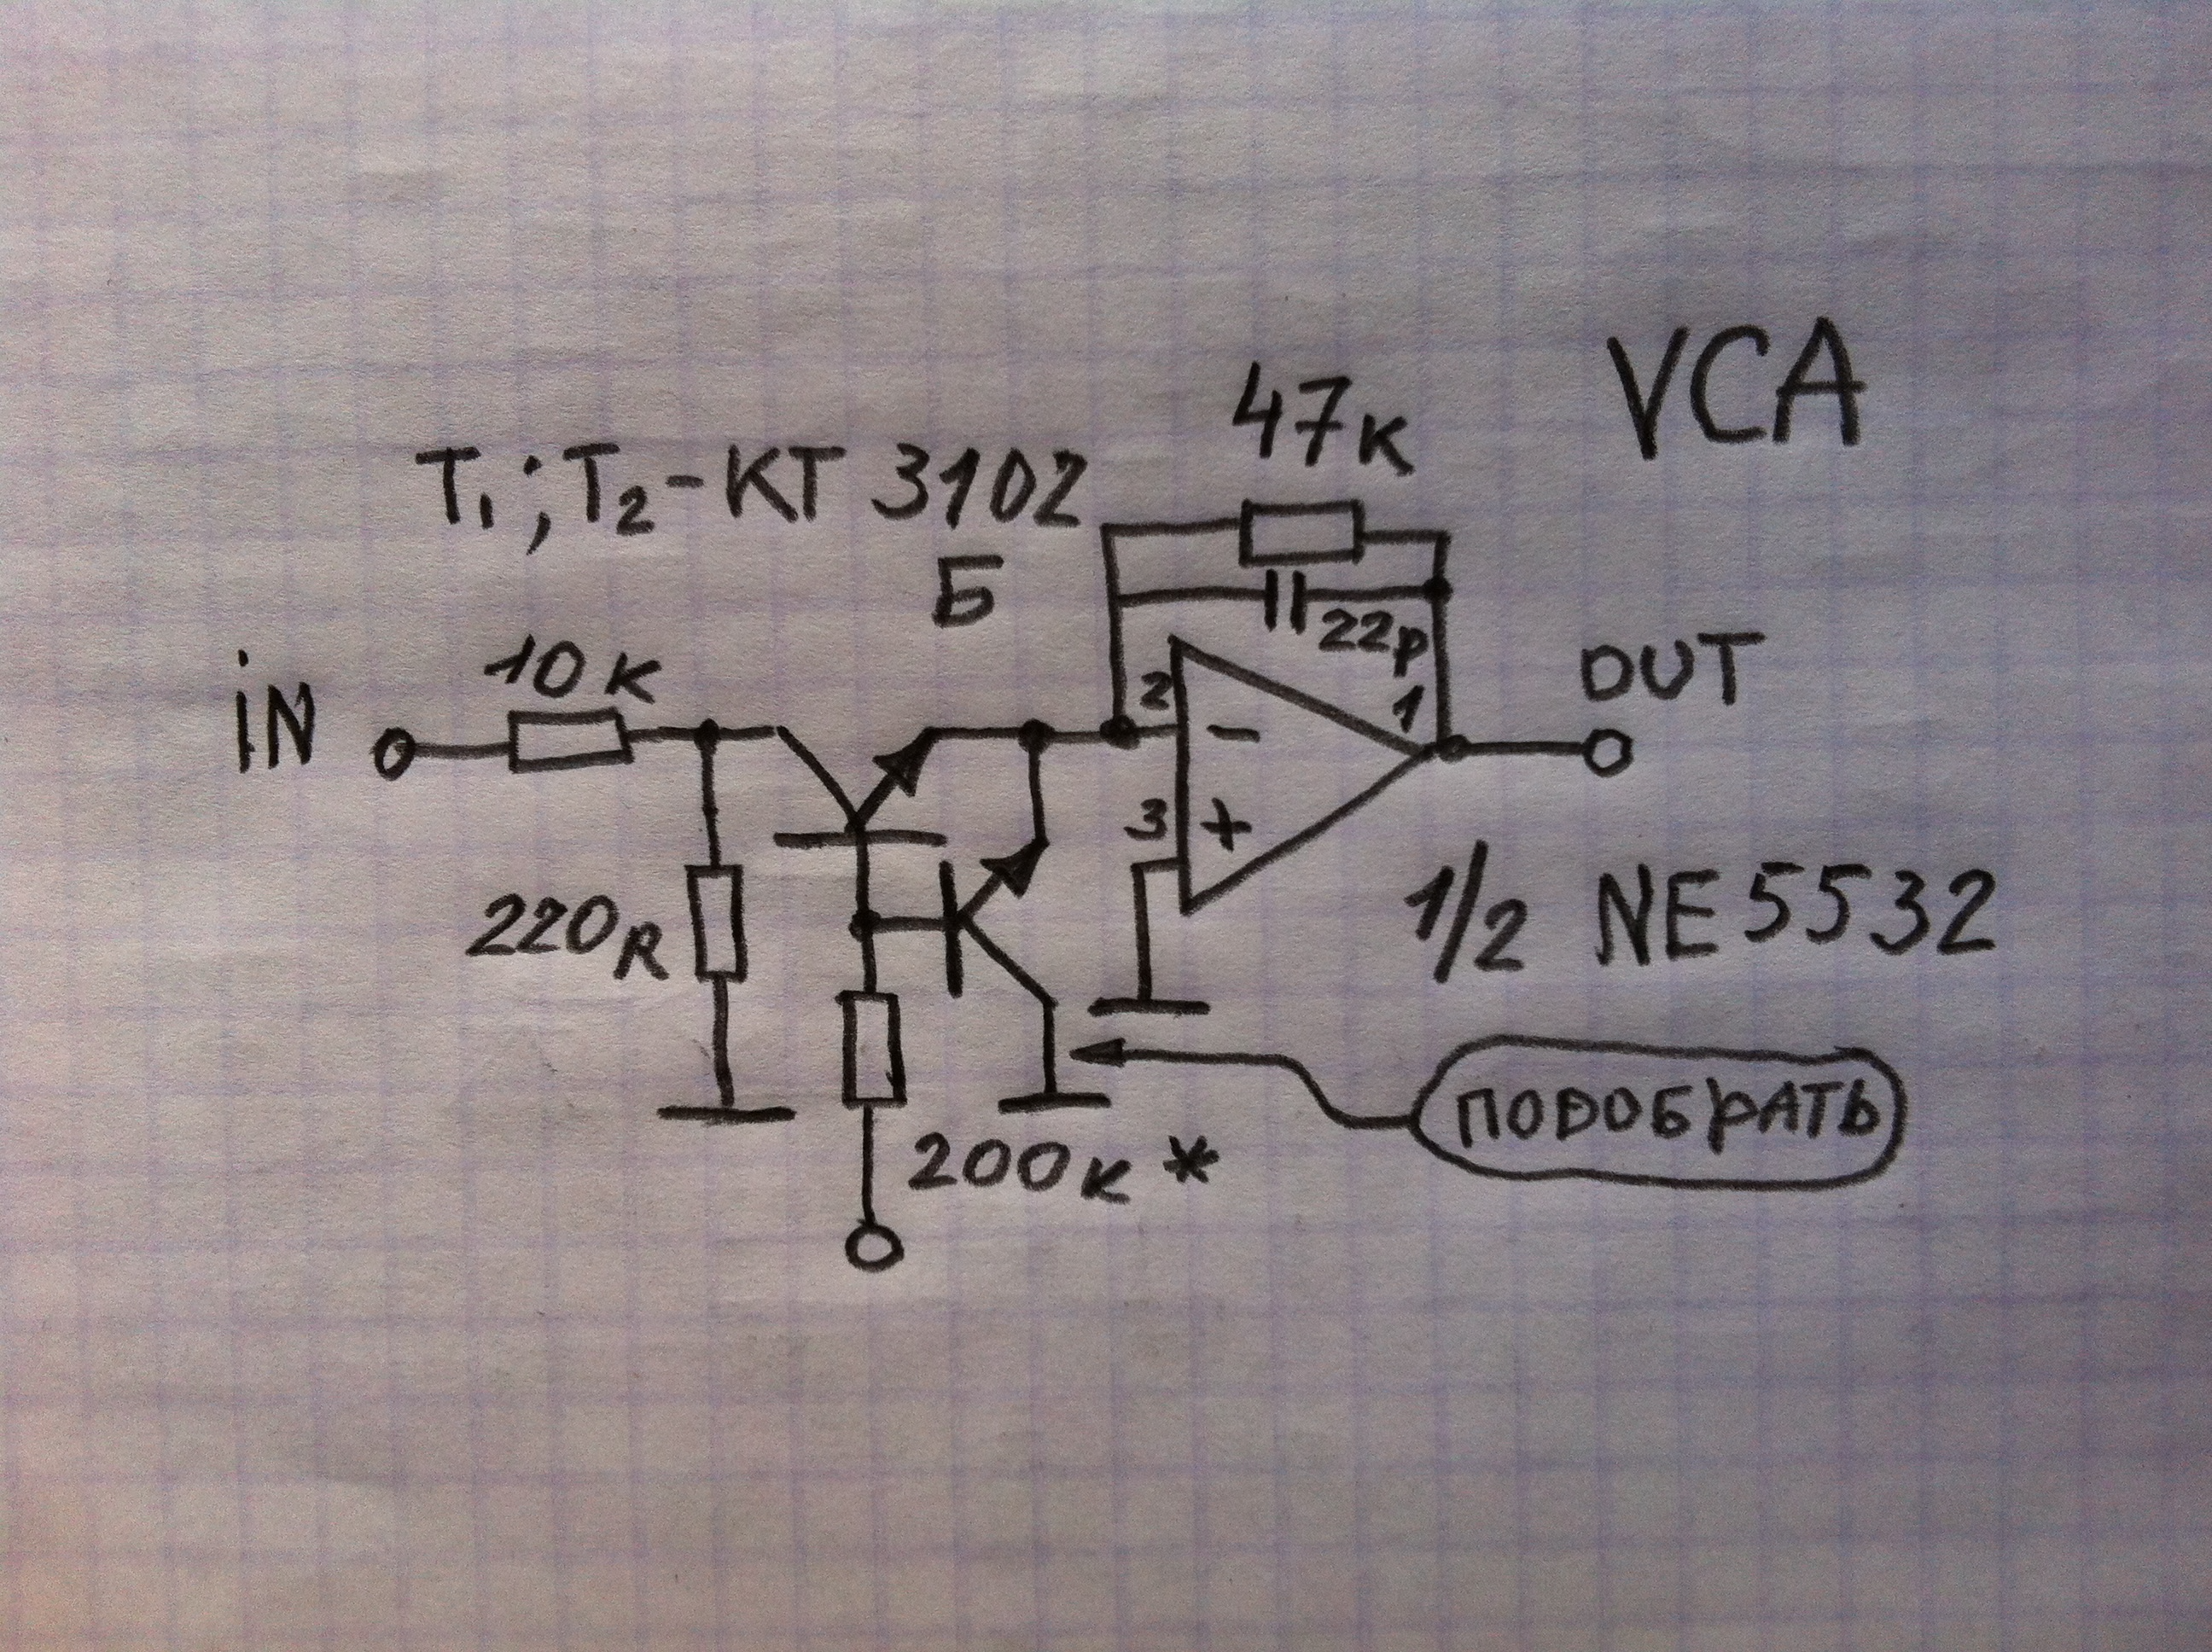 VCA
47к
T₁; T₂ - KT 3102
Б
22p
iN
10к
2
-
1
OUT
3
+
220R
1/2 NE5532
200к *
ПОДОБРАТЬ